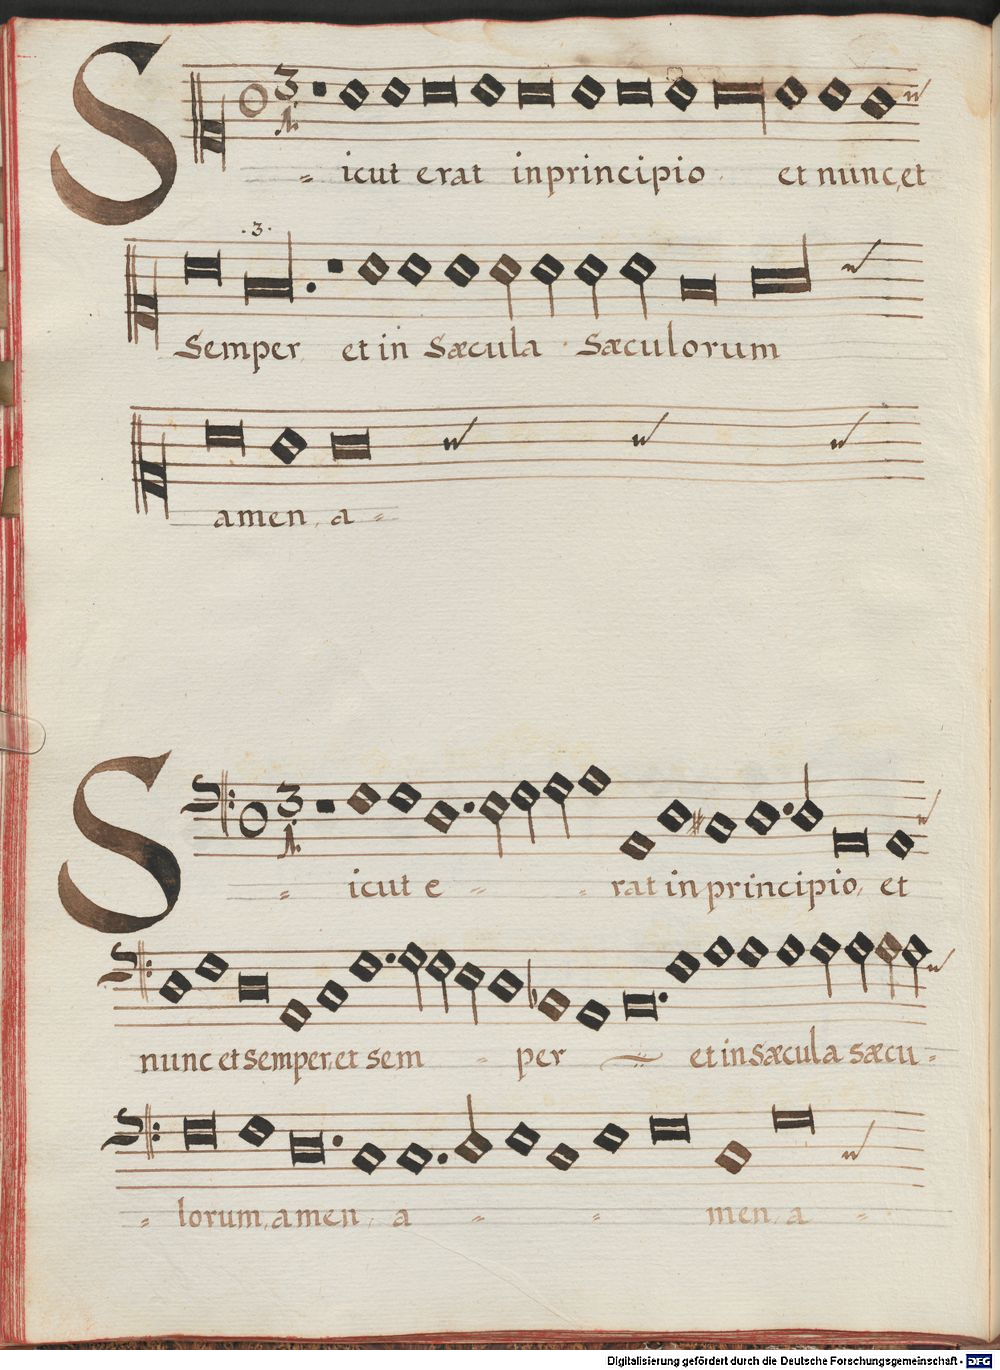 Sicut erat in principio et nunc, et
.3.
Semper et in Sæcula Sæculorum
amen, a
Sicut e - - rat in principio, et
nunc et semper, et sem - per et in Sæcula sæcu -
lorum, amen, a - - men, a -
Digitalisierung gefördert durch die Deutsche Forschungsgemeinschaft - DFG